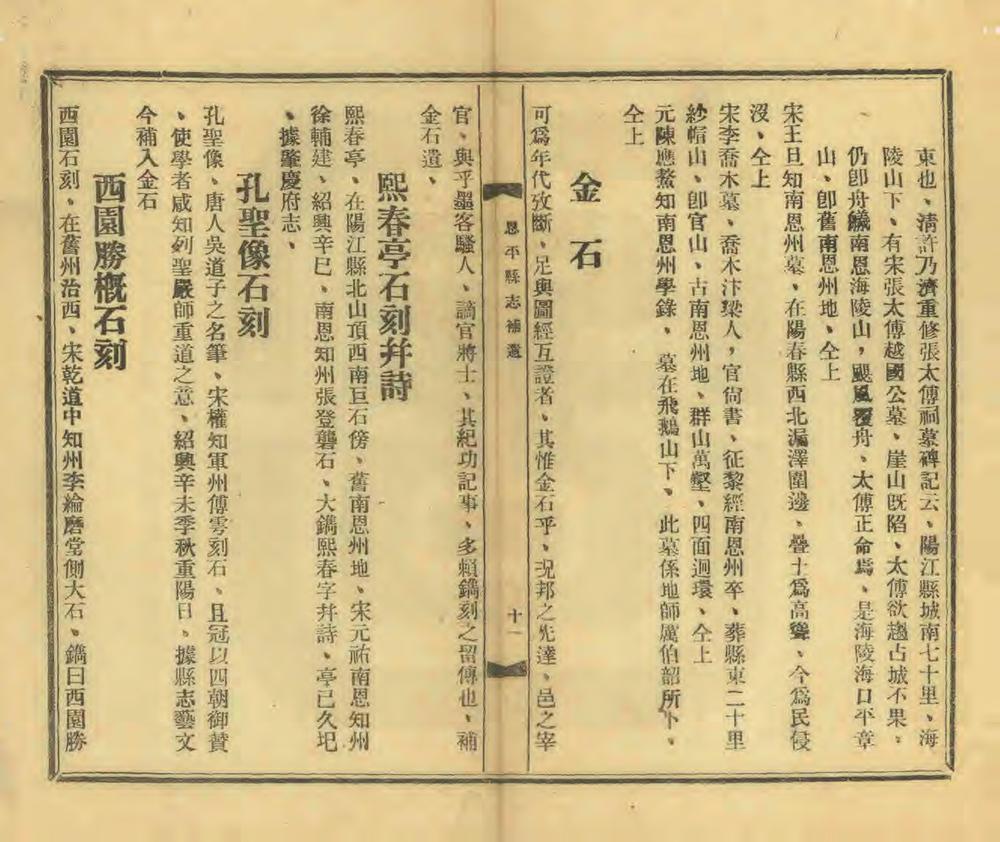 東也、淸許乃濟重修張太傅祠墓碑記云、陽江縣城南七十里、海
陵山下、有宋張太傅越國公墓、崖山旣陷、太傅欲趨占城不果、
仍卽舟艤南恩海陵山，颶風覆舟、太傅正命焉、是海陵海口平章
山、卽舊南恩州地、仝上
宋王旦知南恩州墓、在陽春縣西北漏澤園邊、疊土爲高塋、今爲民侵
沒、仝上
宋李喬木墓、喬木汴梁人，官尙書、征黎經南恩州卒、葬縣東二十里
紗帽山、卽官山、古南恩州地、群山萬壑、四面迴環、仝上
元陳應鰲知南恩州學錄、墓在飛鵝山下、此墓係地師厲伯韶所卜、
仝上
金石
可爲年代攷斷、足與圖經互證者、其惟金石乎、況邦之先達、邑之宰
恩平縣志補遺
十一
官、與乎墨客騷人、謫官將士、其紀功記事、多賴鐫刻之留傳也、補
金石遺、
熙春亭石刻幷詩
熙春亭、在陽江縣北山頂西南巨石傍、舊南恩州地、宋元祐南恩知州
徐輔建、紹興辛巳、南恩知州張登礱石、大鐫熙春字幷詩、亭已久圮
、據肇慶府志、
孔聖像石刻
孔聖像、唐人吳道子之名筆、宋權知軍州傅雱刻石、且冠以四朝御贊
、使學者咸知列聖嚴師重道之意、紹興辛未季秋重陽日、據縣志藝文
今補入金石
西園勝槪石刻
西園石刻、在舊州治西、宋乾道中知州李綸磨堂側大石、鐫曰西園勝